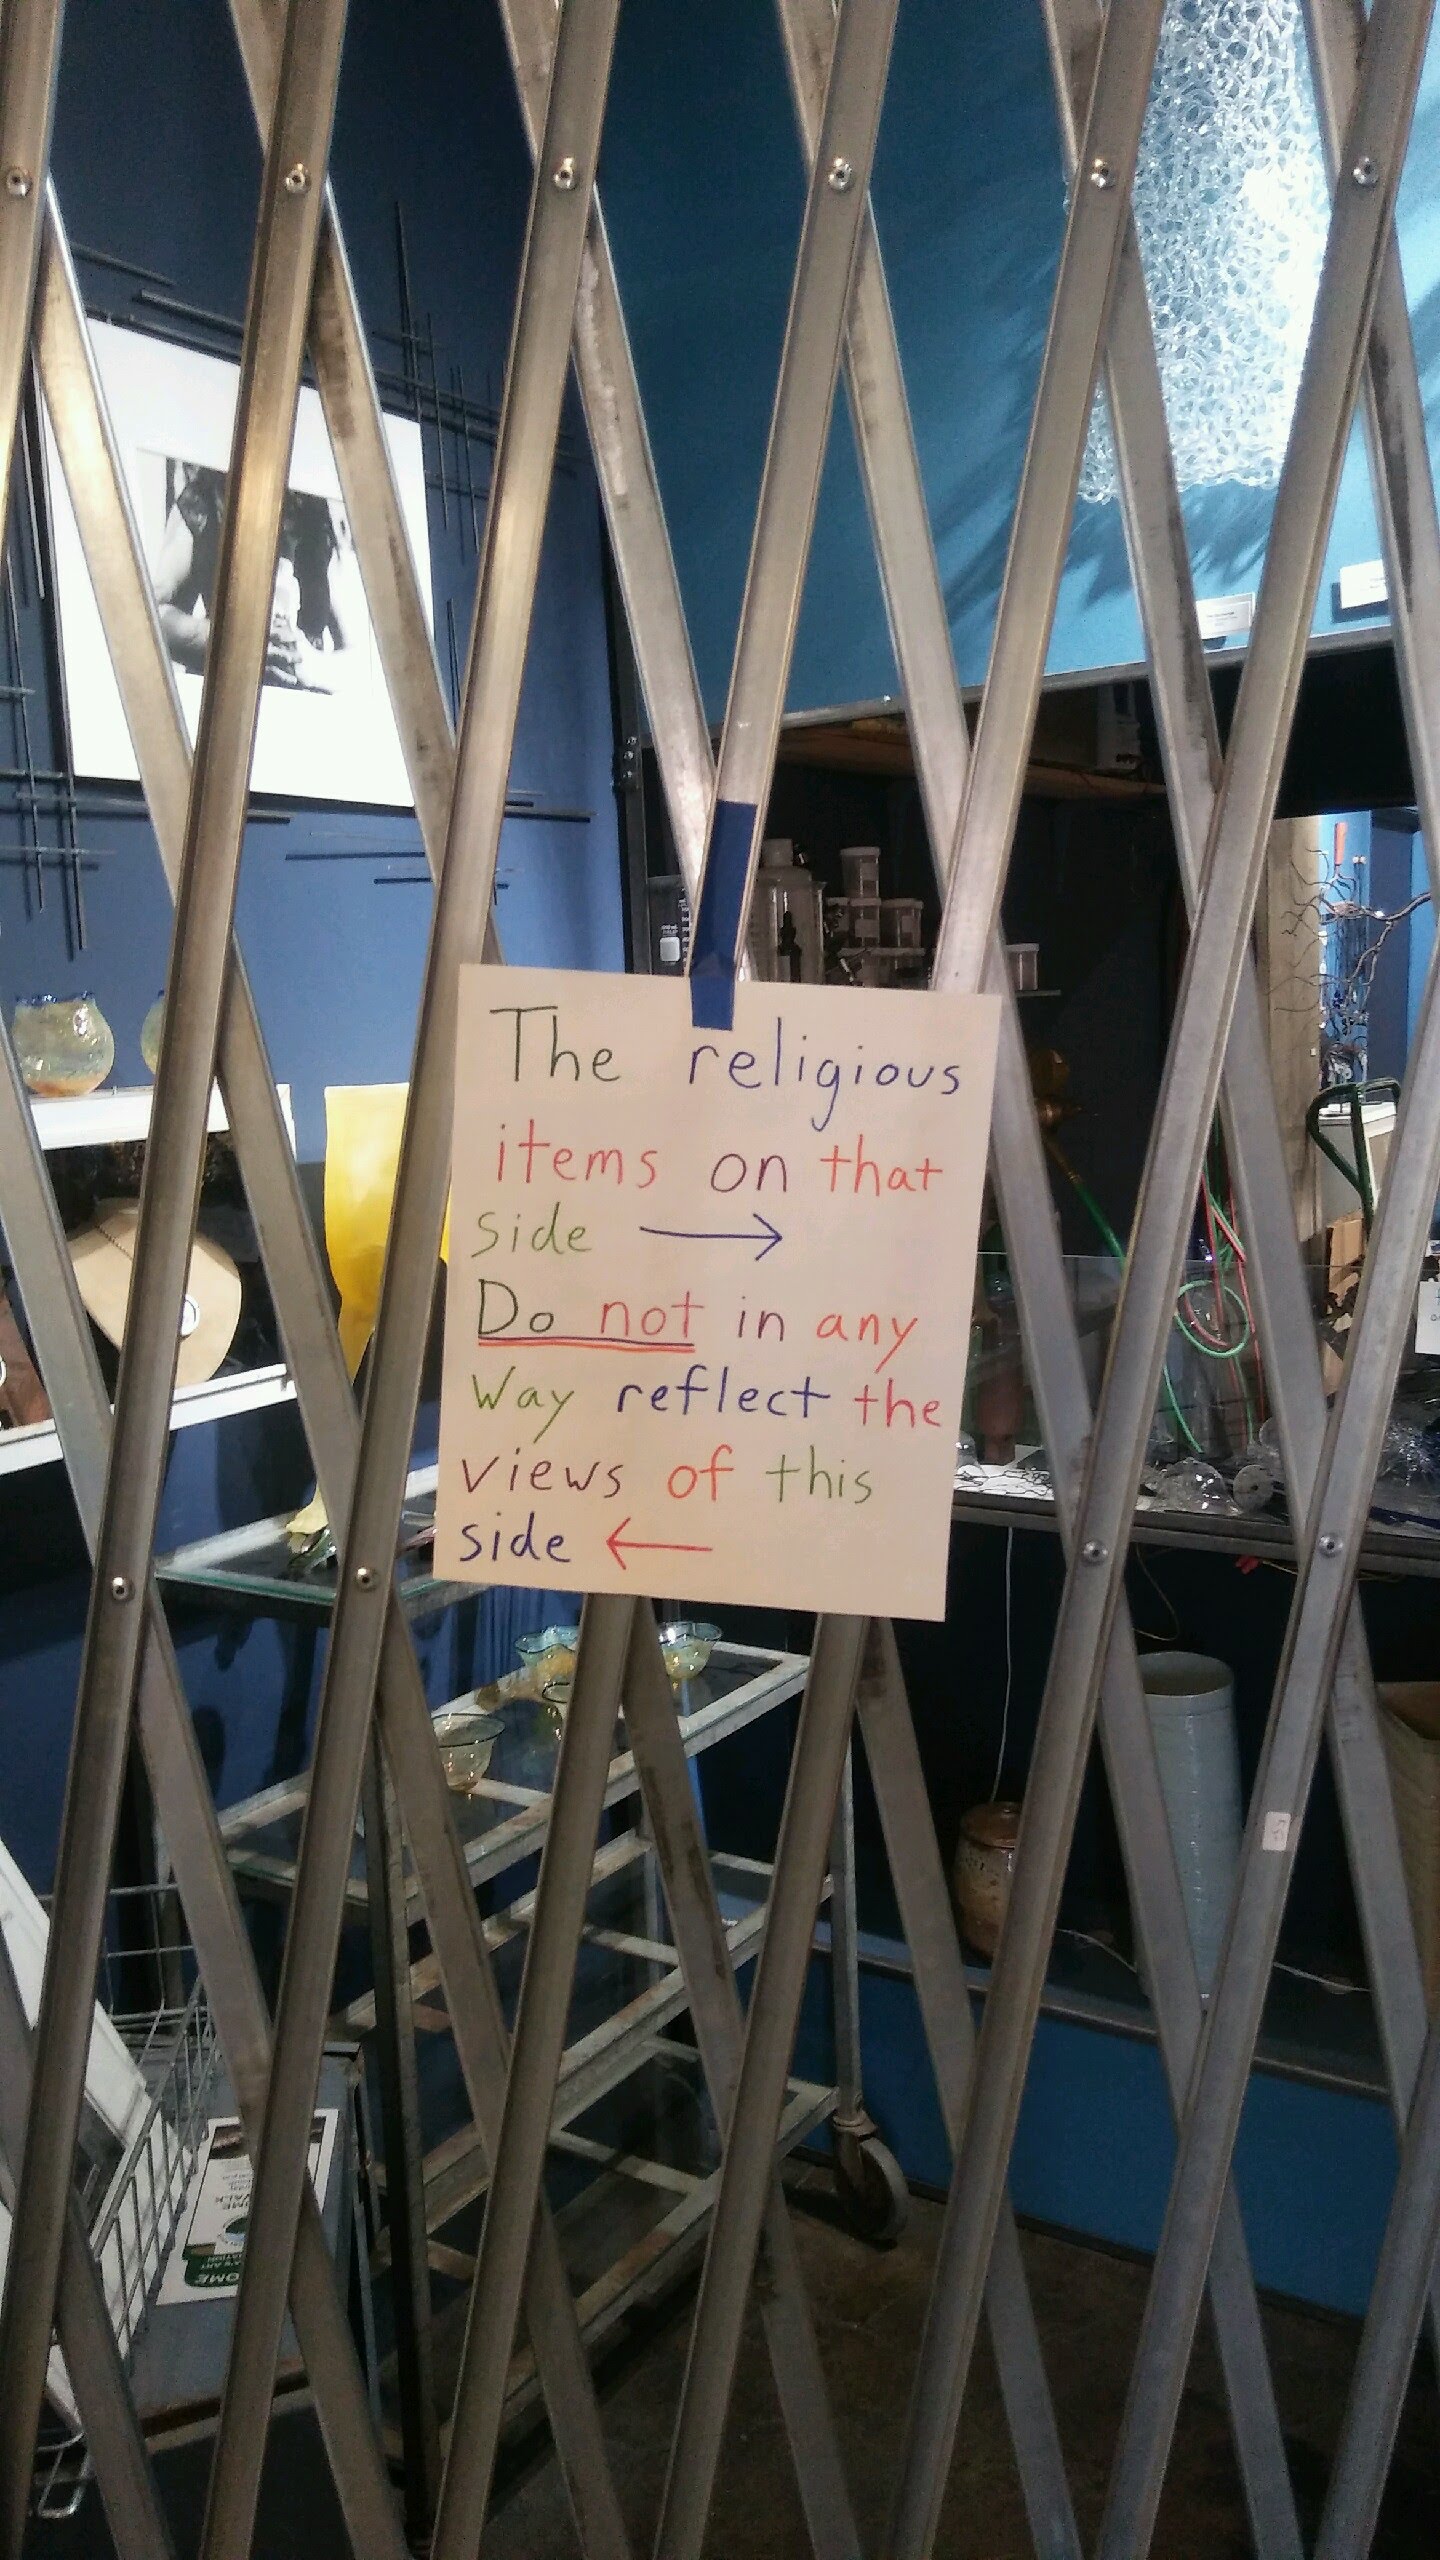 The religious
items on that
side →
Do not in any
way reflect the
views of this
side ←